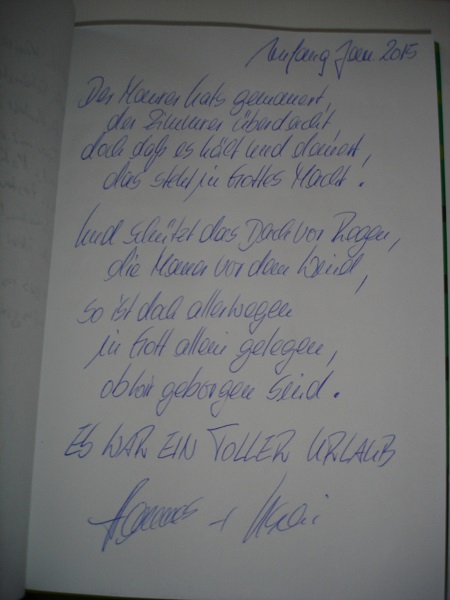 Anfang Jan 2015
Der Maurer hats gemauert,
der Zimmrer überdacht,
doch daß es hält und dauert,
das steht in Gottes Macht.
Und schützt das Dach vor Regen,
die Mauer vor dem Wind,
so ist doch allerwegen
in Gott allein gelegen,
ob wir geborgen sind.
ES WAR EIN TOLLER URLAUB
Hannes +